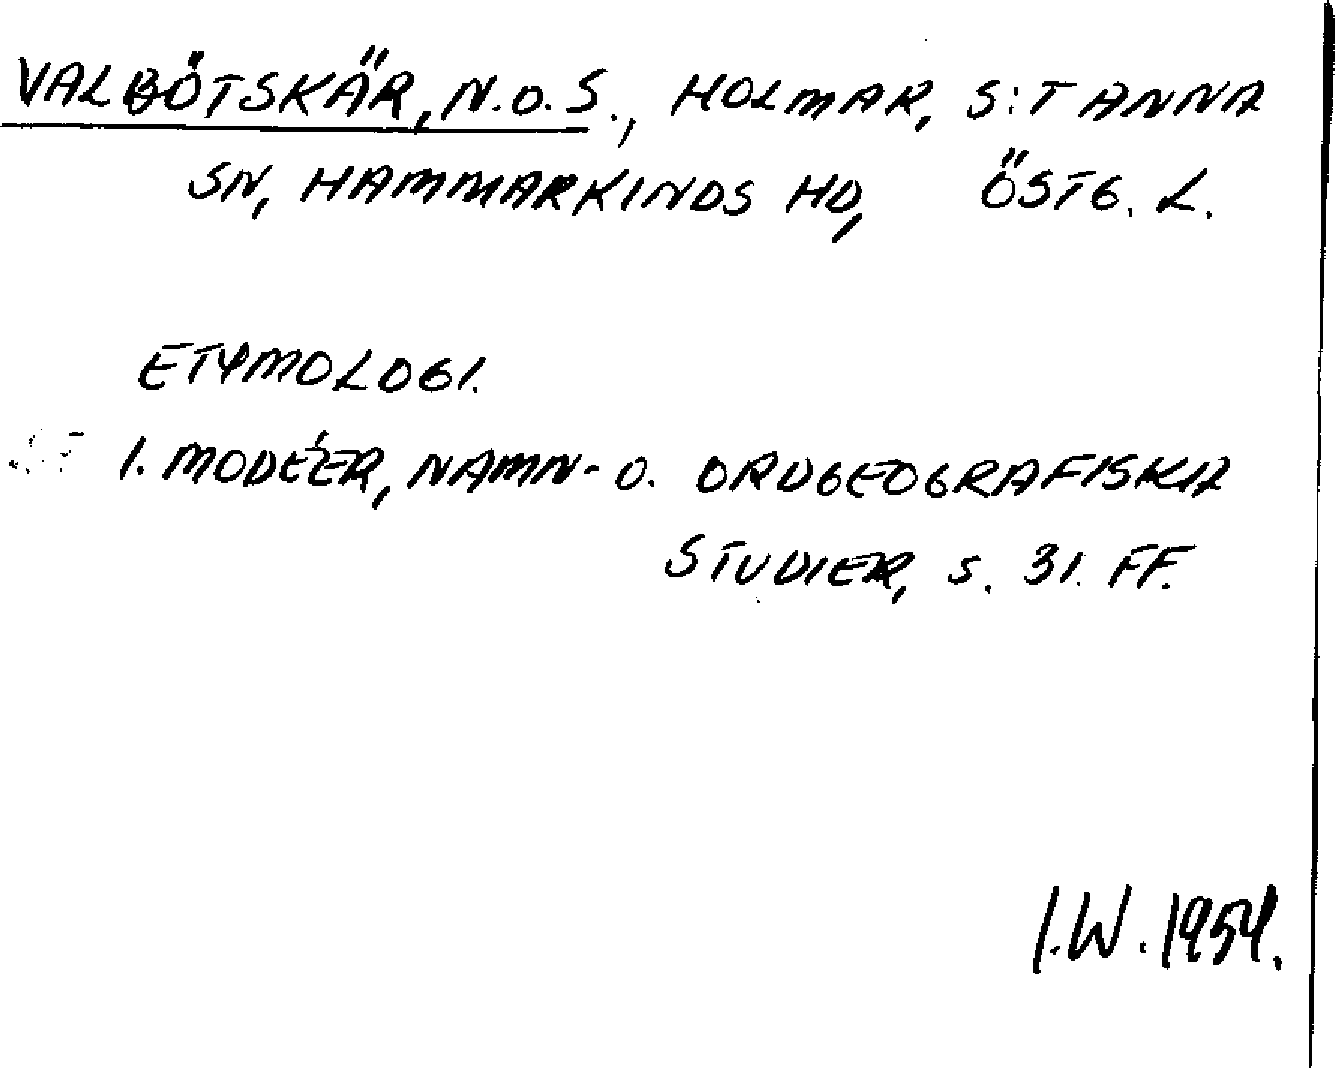 VALBÖTSKÄR, N.O.S., HOLMAR, S:T ANNA
SN, HAMMARKINDS HD, ÖSTG. L.
ETYMOLOGI.
I. MODÉER, NAMN- O. ORDGEOGRAFISKA
STUDIER, S. 31. FF.
I.W. 1954.